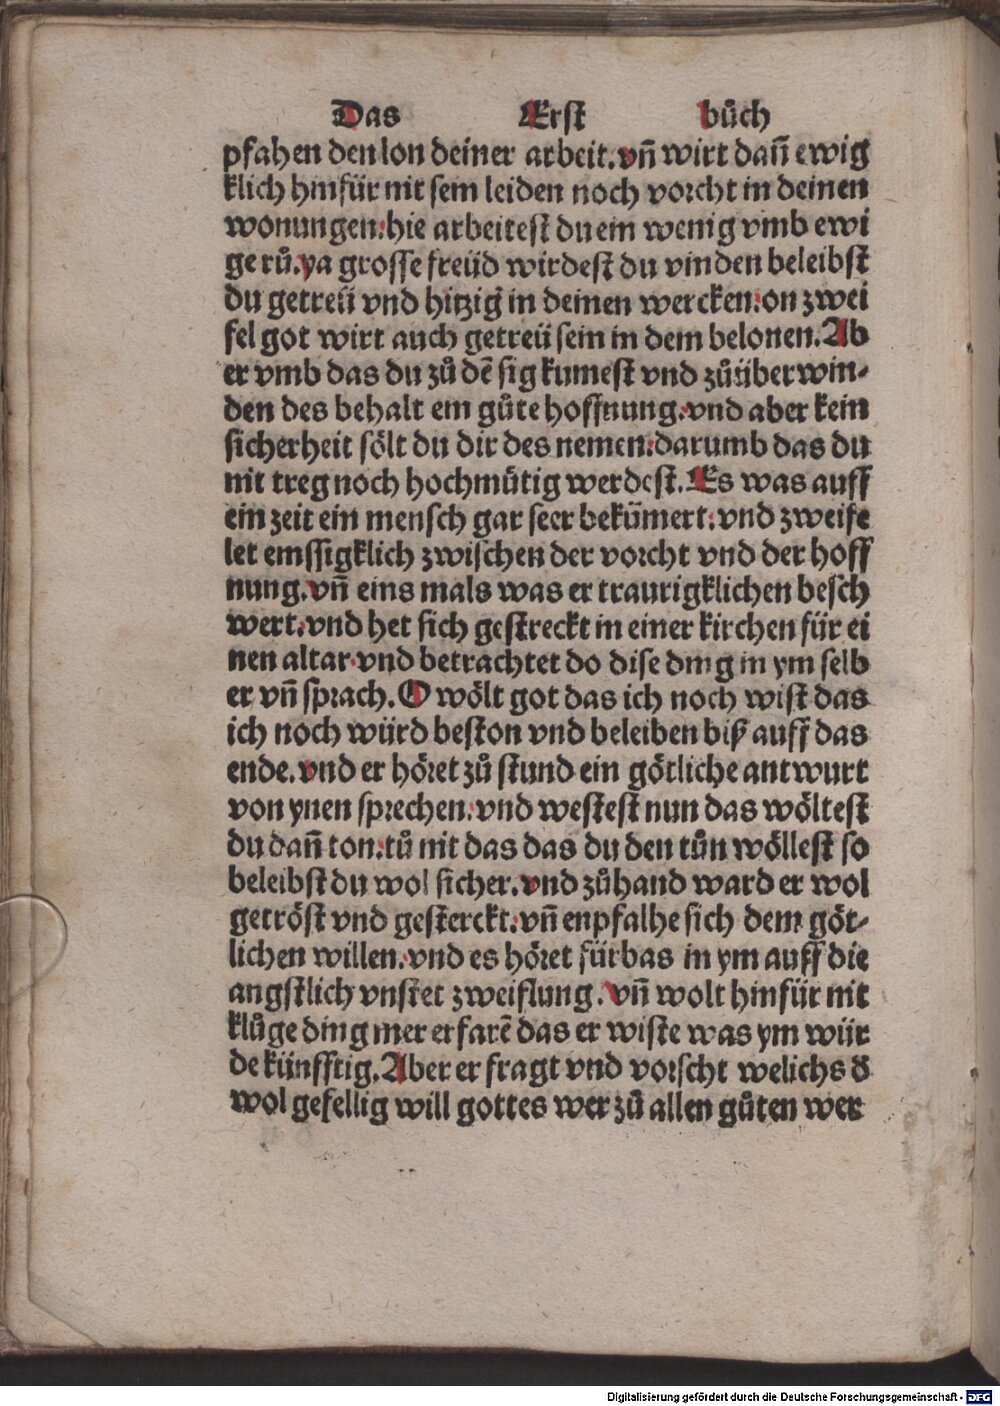 Das Erst bůch
pfahen den lon deiner arbeit. vñ wirt dañ ewig
klich hinfür nit sein leiden noch vorcht in deinen
wonungen: hie arbeitest du ein wenig vmb ewi
ge rů. ya grosse freüd wirdest du vinden beleibst
du getreü vnd hitzig in deinen wercken: on zwei
fel got wirt auch getreü sein in dem belonen. Ab
er vmb das du zů dē sig kumest vnd zů überwin-
den des behalt ein gůte hoffnung: vnd aber kein
sicherheit sölt du dir des nemen: darumb das du
nit treg noch hochmütig werdest. Es was auff
ein zeit ein mensch gar seer bekümert: vnd zweife
let emssigklich zwischen der vorcht vnd der hoff
nung. vñ eins mals was er traurigklichen besch
wert: vnd het sich gestreckt in einer kirchen für ei
nen altar. vnd betrachtet do dise ding in ym selb
er vñ sprach. O wölt got das ich noch wist das
ich noch würd beston vnd beleiben biß auff das
ende. vnd er höret zů stund ein götliche antwurt
von ynen sprechen. vnd westest nun das wöltest
du dañ ton: tů nit das das du den tůn wöllest so
beleibst du wol sicher. vnd zůhand ward er wol
getröst vnd gesterckt: vñ enpfalhe sich dem göt-
lichen willen. vnd es höret fürbas in ym auff die
angstlich vnstet zweiflung. vñ wolt hinfür nit
klůge ding mer erfarē das er wiste was ym wür
de künfftig. Aber er fragt vnd vorscht welichs d̕
wol gefellig will gottes wer zů allen gůten wer
Digitalisierung gefördert durch die Deutsche Forschungsgemeinschaft - DFG